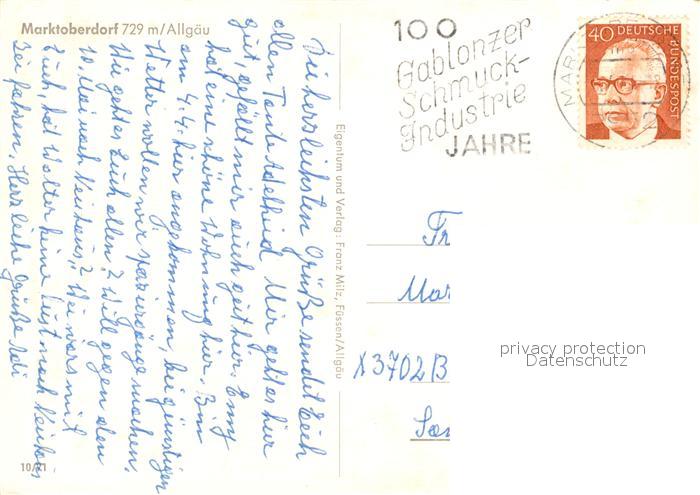 Marktoberdorf 729 m/Allgäu
Die herzlichsten Grüße sendet Euch
allen Tante Adelheid. Mir geht es hier
gut, gefällt mir auch gut hier. Emmy
hat eine schöne Wohnung hier. Bin
am 4.4. hier angekommen, bei günstigen
Wetter wollen wir spaziergänge machen.
Wie geht es Euch allen? Will gegen den
10. Mai nach Neuhaus? Wie wars mit
Euch, hat Walter keine Lust nach Neuhaus
zu fahren. Herzliche Grüße
10/71
Eigentum und Verlag: Franz Milz, Füssen/Allgäu
100
Gablonzer
Schmuck-
Industrie
JAHRE
40 DEUTSCHE
BUNDESPOST
Fr
Mar
X3702 B
privacy protection
Datenschutz